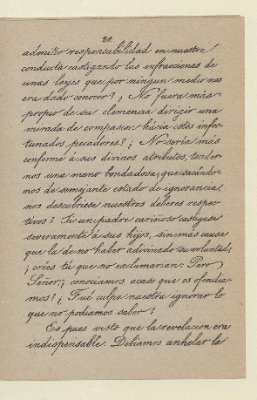 21.
admitir responsabilidad en nuestra
conducta castigando las infracciones de
unas leyes que por ningun medio nos
era dado conocer? ¿No fuera más
propio de su clemencia dirigir una
mirada de compasion hácia estos infor-
tunados pecadores? ¿No sería más
conforme á sus divinos atributos, tender-
nos una mano bondadosa, que sacándo-
nos de semejante estado de ignorancia,
nos descubriera nuestros deberes respec-
tivos? Si un padre cariñoso castigase
severamente á sus hijos, sin más causa
que la de no haber adivinado su voluntad,
¿creés tú que no exclamarian: Pero
Señor, ¿conociamos acaso que os ofendia-
mos? ¿Fué culpa nuestra ignorar lo
que no podiamos saber?
Es pues visto que la revelacion era
indispensable. Debiamos anhelar la